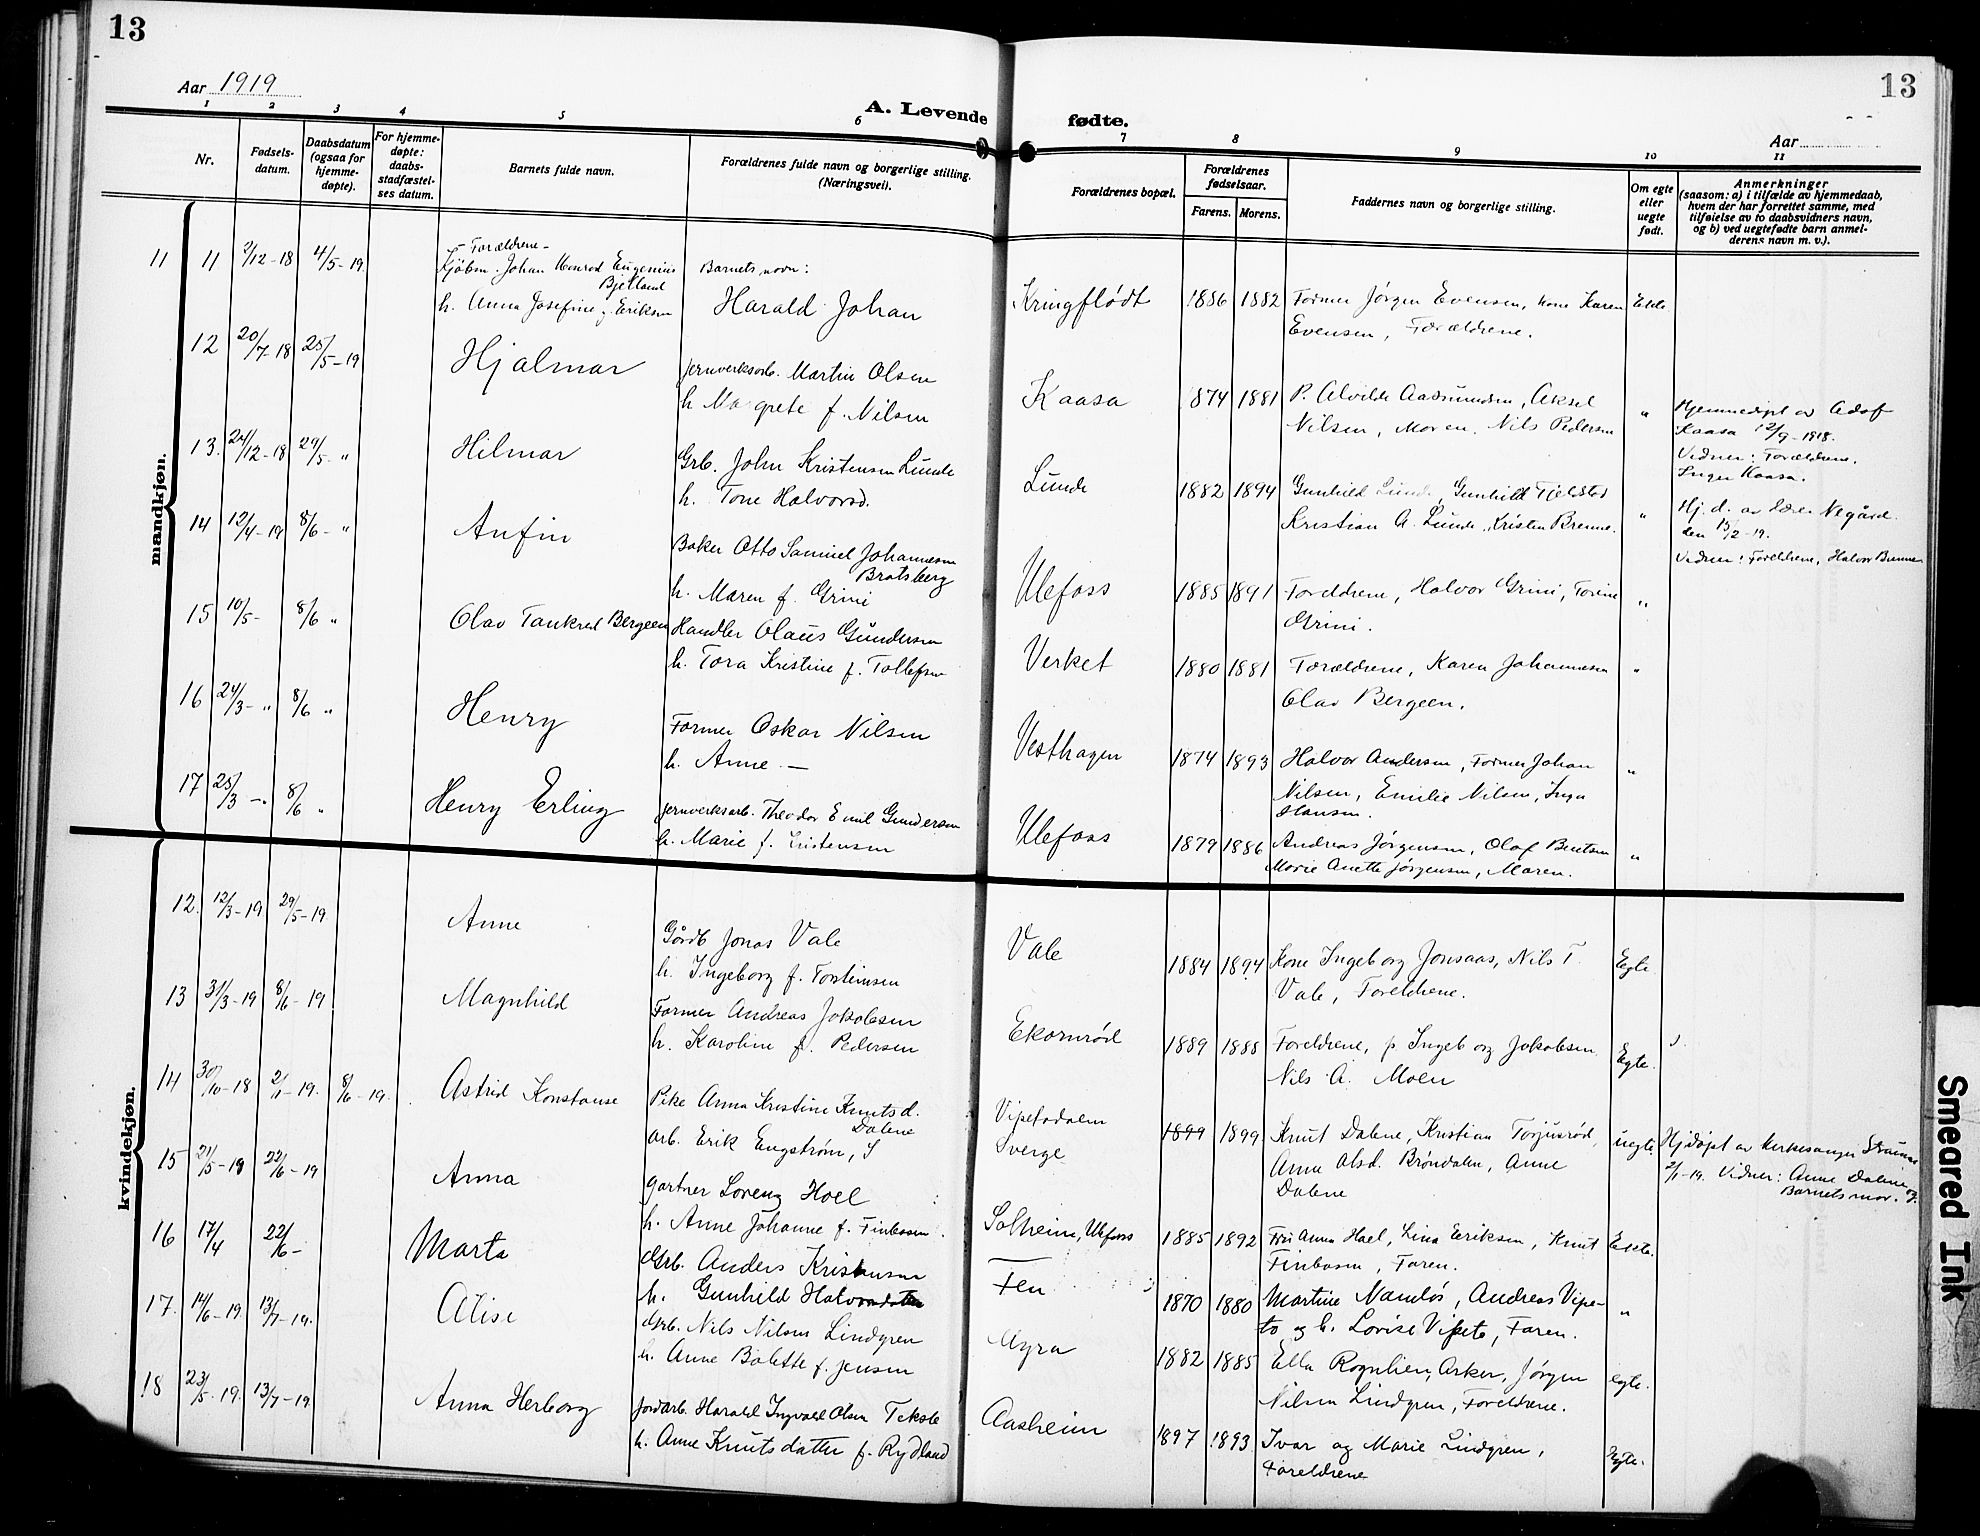 13
13
Aar 1919
A. Levende fødte.
Aar
1 2 3 4 5 6 7 8 9 10 11
Nr.
Fødselsdatum.
Daabsdatum (ogsaa for hjemmedøpte).
For hjemmedøpte: daabsstadfæstelses datum.
Barnets fulde navn.
Forældrenes fulde navn og borgerlige stilling. (Næringsvei).
Forældrenes bopæl.
Forældrenes fødselsaar.
Farens. Morens.
Faddernes navn og borgerlige stilling.
Om egte eller uegte født.
Anmerkninger
(saasom: a) i tilfælde av hjemmedaab, hvem der har forrettet samme, med tilføielse av to daabsvidners navn, og b) ved uegtefødte barn anmelderens navn m. v.).
mandkjøn.
11 11 2/12-18 4/5-19.
- Forældrene -
Kjøbm. Johan Konrad Eugenius Bjelland
h. Anna Josefine f. Eriksen
Barnets navn:
Harald Johan
Kringflødt 1886 1882 Former Jørgen Evensen, kone Karen
Evensen, Forældrene.
Ekte
12 20/7-18 25/5-19 Hjalmar
jernverksarb. Martin Olsen
h. Magrete f. Nilsen
Kaasa 1874 1881 P. Alvilde Aasmundsen, Aksel
Nilsen, Moren, Nils Pedersen
"
Hjemmedøpt av Adolf
Kaasa 12/9-1918.
Vidner: Forældrene,
Inger Kaasa.
13. 24/12-18 29/5- " Hilmar
Grb. John Kristensen Lunde
h. Tone Halvorsd.
Lunde 1882 1894 Gunhild Lunde, Gunhild Fjelstad
Kristian A. Lunde, Kristen Brenne.
"
Hj. d. av lærer Negård
den 15/2-19.
Vidner: Foreldrene, Halvor Brenne
14 12/4-19 8/6- " Anfin
Baker Otto Samuel Johannesen
Bratsberg
h. Maren f. Grini
Ulefoss 1885 1891 Foreldrene, Halvor Grini, Torine
Grini.
"
15 10/5- 8/6 " Olav Tankred Bergeen
Handler Olaus Gundersen
h. Tora Kristine f. Tollefsen
Verket 1880 1881 Forældrene, Karen Johannesen
Olav Bergeen.
"
16 24/3- " 8/6 " Henry
Former Oskar Nilsen
h. Anne -
Vesthagen 1874 1893 Halvor Andersen, Former Johan
Nilsen, Emilie Nilsen, Inga
Hansen.
"
17 25/3 - " 8/6 " Henry Erling
jernverksarb. Theodor Emil Gundersen
h. Marie f. Kristensen
Ulefoss 1879 1886 Andreas Jørgensen, Olaf Bentsen
Marie Anette Jørgensen, Maren.
"
kvindekjøn.
12. 12/3-19 29/5-19 Anne
Gårdb Jonas Vale
h. Ingeborg f. Torsteinsen
Vale 1884 1894 Kone Ingeborg Jonsaas, Nils T.
Vale, Foreldrene.
Egte
13 31/3-19 8/6-19 Magnhild
Former Andreas Jakobsen
h. Karoline f. Pedersen
Ekornrød 1889 1888 Foreldrene, p. Ingeborg Jakobsen
Nils A. Moen
Egte.
14 30/10-18 2/1-19. 8/6-19. Astrid Konstanse
Pike Anna Kristine Knutsd.
Dalene
arb. Erik Engstrøm, S
Vipetodalen
Sverge
1899 1899 Knut Dalene, Kristian Torjusrød,
Anna Olsd. Brøndalen, Anne
Dalene
uegte.
Hjdøpt av kirkesanger
2/1-19. Vidner: Anne Dalene og
Barnets mor.
15 21/5-19 22/6-19 Anna
Gartner Lorenz Hoel
h. Anne Johanne f. Finbosen.
Solheim, Ulefoss 1885 1892 Fru Anna Hoel, Lina Eriksen, Knut
Finbosen, Faren.
Ekte.
16 17/4 22/6- Marta
Grb. Anders Kristensen
h. Gunhild Halvorsdatter
Fen 1870 1880 Martine Namløs, Andreas Vipe-
to og h. Lovise Vipeto, Faren.
"
17. 14/6-19. 13/7-19. Alise
Grb. Nils Nilsen Lindgren
h. Anne Bolette f. Jensen
Myra 1882 1885 Ella Rognlien, Arker, Jørgen
Nilsen Lindgren, Foreldrene.
egte.
18 23/5-19. 13/7-19. Anna Herborg
Jordarb. Harald Ingvald Olsen Teksle
h. Anne Knutsdatter f. Rydland
Aasheim 1897 1893 Ivar og Marie Lindgren,
Foreldrene
Egte.
Smeared Ink